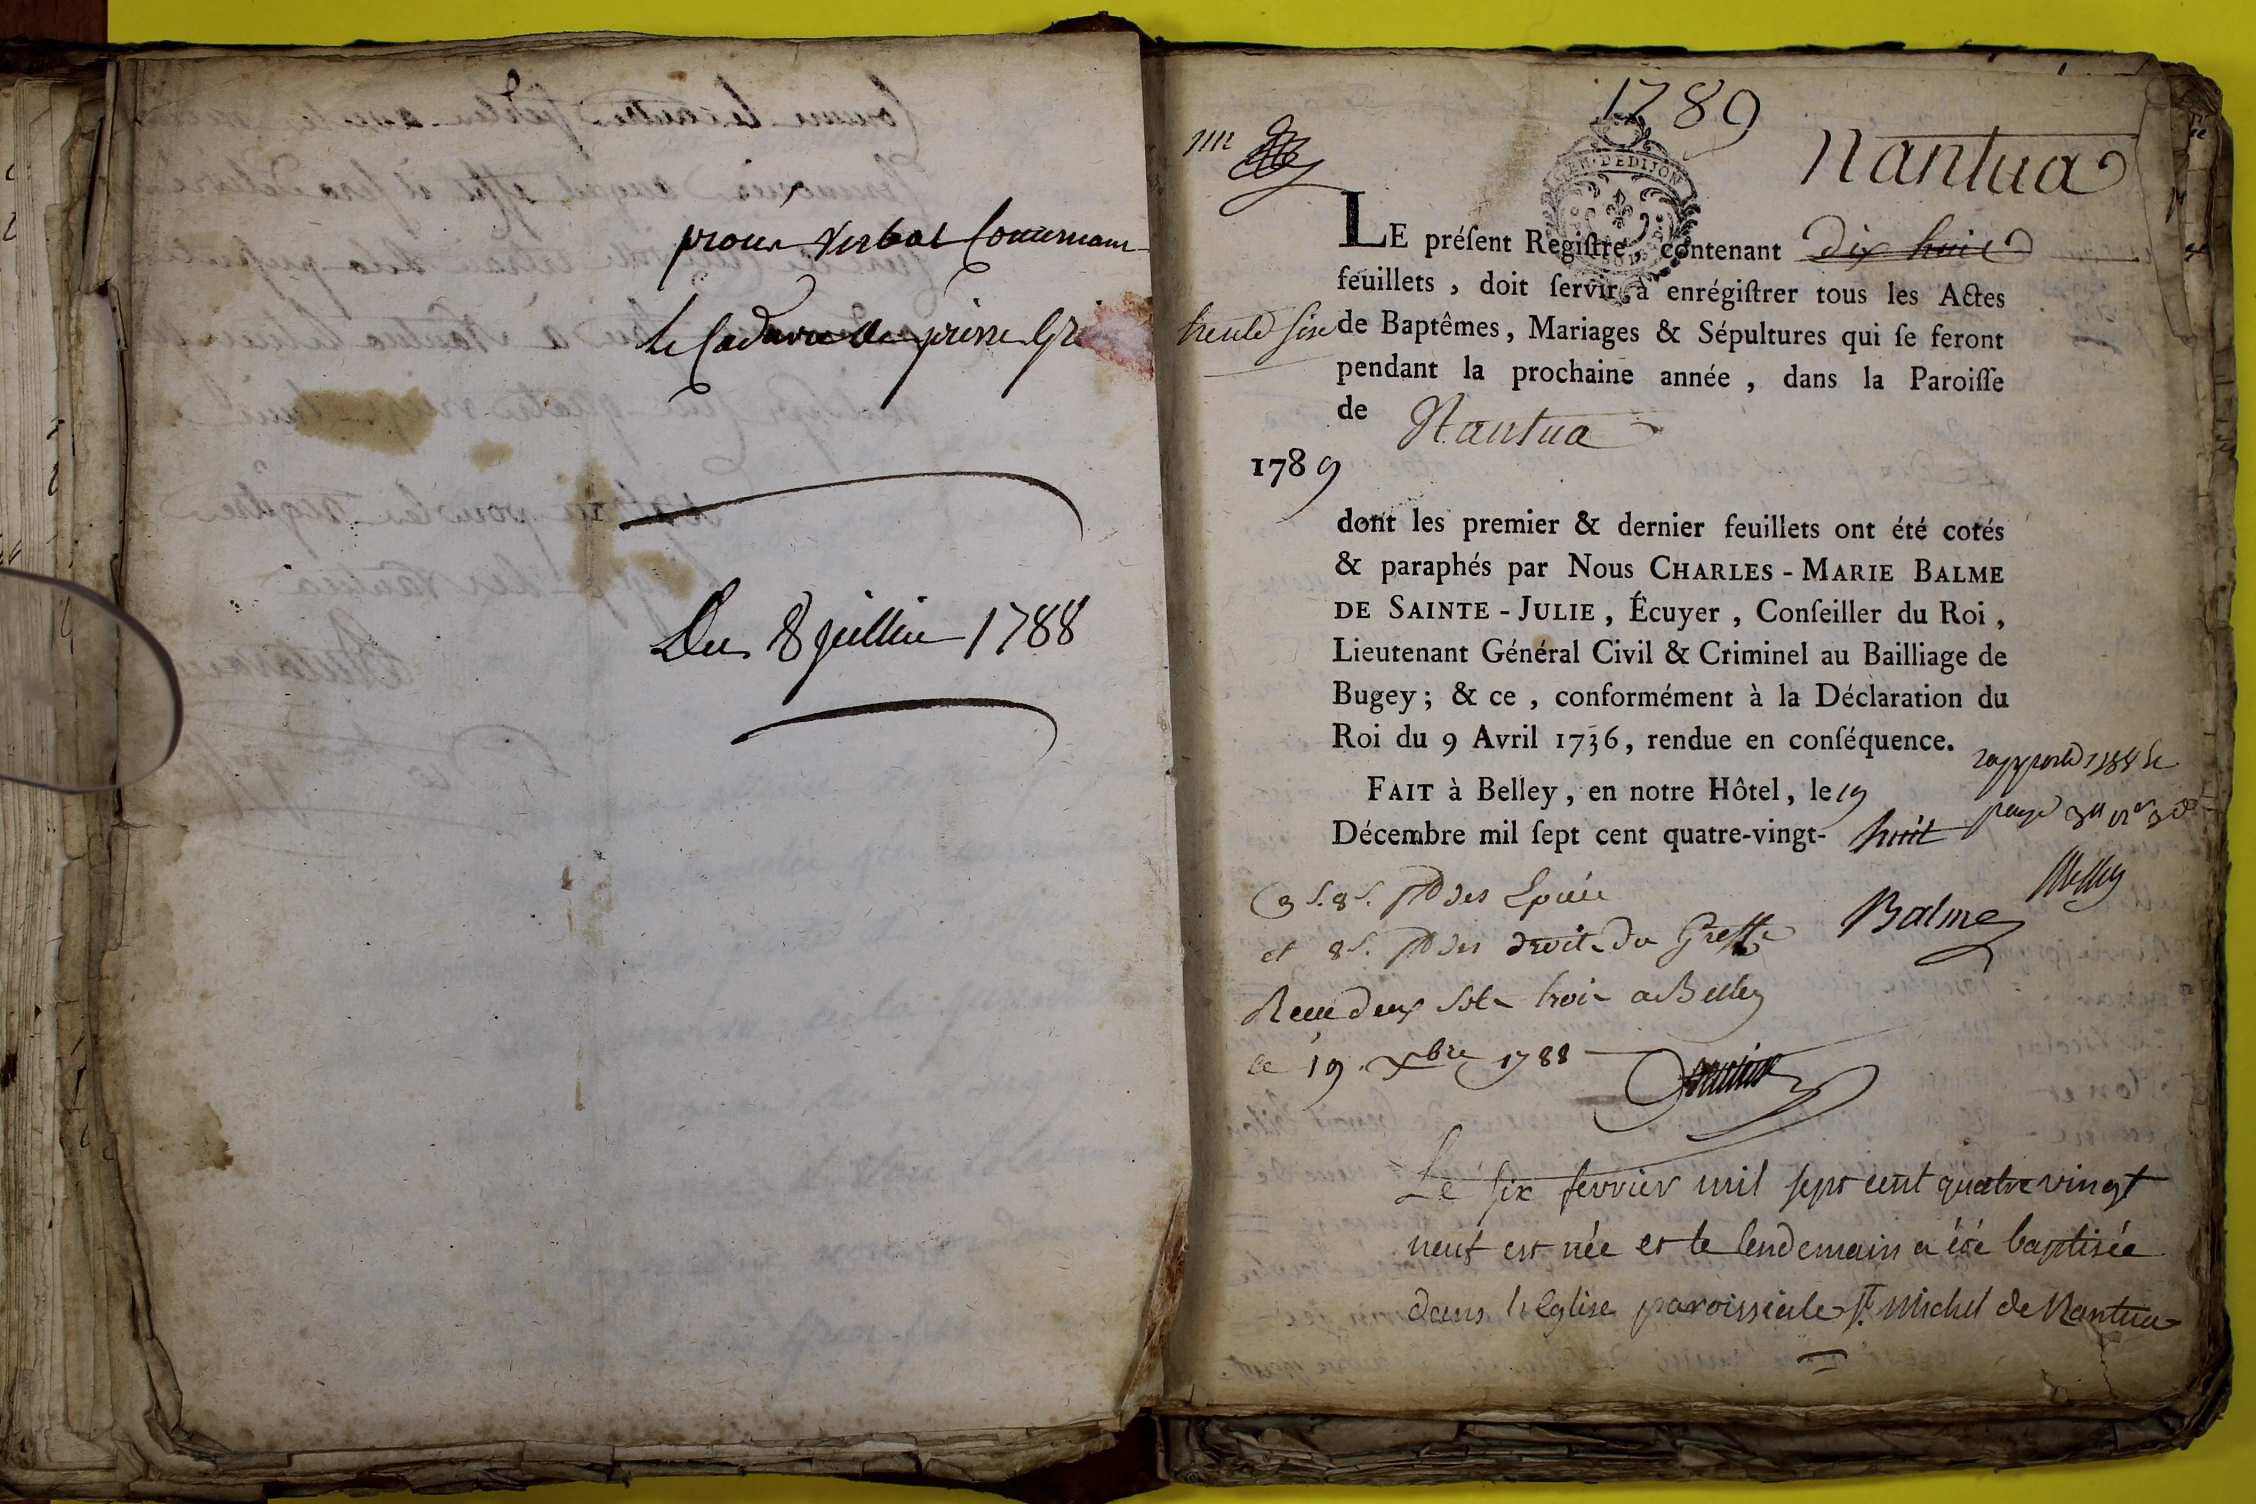 proces verbal Concernant
le Cadavre de pierre
Du 8 juillet 1788
1789
Nantua
GEN. DE DIJON
LE préſent Regiſtre, contenant dix huit
feuillets, doit ſervir à enrégiſtrer tous les Actes
trente six
de Baptêmes, Mariages & Sépultures qui ſe feront
pendant la prochaine année, dans la Paroiſſe
de Nantua
1789
dont les premier & dernier feuillets ont été cotés
& paraphés par Nous CHARLES-MARIE BALME
DE SAINTE-JULIE, Écuyer, Conſeiller du Roi,
Lieutenant Général Civil & Criminel au Bailliage de
Bugey; & ce, conformément à la Déclaration du
Roi du 9 Avril 1736, rendue en conſéquence.
FAIT à Belley, en notre Hôtel, le 19
Décembre mil ſept cent quatre-vingt-huit
rapporté 1788
Balme
et 8 s. des droits du Greffe
Receu deux sols trois a Belley
le 19. Xbre 1788
Le six fevrier mil sept cent quatre vingt
neuf est née et le lendemain a été baptisée
dans l'Eglise paroissiale St. Michel de Nantua